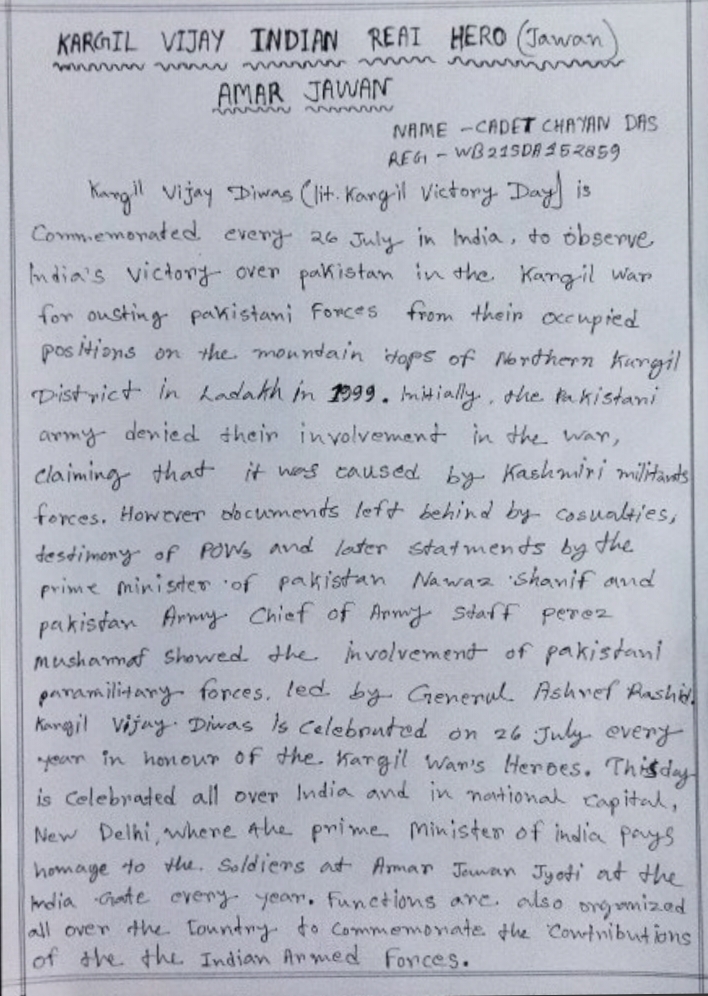 KARGIL VIJAY INDIAN REAI HERO (Jawan)
AMAR JAWAN
NAME - CADET CHAYAN DAS
REGI - WB21SDA152859
Kargil Vijay Diwas (lit. Kargil Victory Day) is
Commemorated every 26 July in India, to observe
India's victory over pakistan in the Kargil war
for ousting pakistani Forces from their occupied
positions on the mountain tops of Northern Kargil
District in Ladakh in 1999. Initially, the Pakistani
army denied their involvement in the war,
claiming that it was caused by Kashmiri militants
forces. However documents left behind by casualties,
testimony of POWs and later statments by the
prime minister of pakistan Nawaz Sharif and
pakistan Army Chief of Army Staff perez
musharraf showed the involvement of pakistani
paramilitary forces. led by General Ashref Rashid.
Kargil Vijay Diwas is celebrated on 26 July every
year in honour of the Kargil War's Heroes. This day
is celebrated all over India and in national capital,
New Delhi, where the prime Minister of india pays
homage to the Soldiers at Amar Jawan Jyoti at the
India Gate every year. Functions are also organized
all over the Country to commemorate the Contributions
of the the Indian Armed Forces.